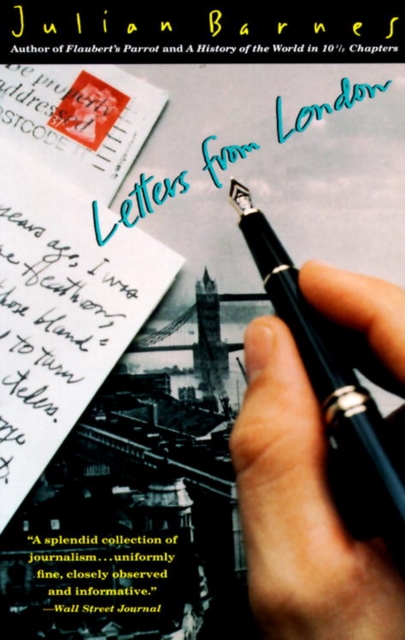 Julian Barnes
Author of Flaubert's Parrot and A History of the World in 10½ Chapters
Be properly
addressed
POSTCODE
Letters from London
years ago, I was
Heathrow,
those bland
to turn
"A splendid collection of
journalism...uniformly
fine, closely observed
and informative."
—Wall Street Journal